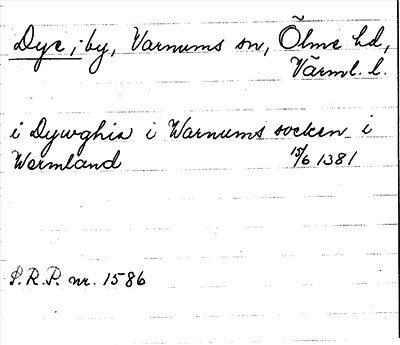 Dye, by, Varnums sn, Ölme hd,
Värml. l.
i Dywghia i Warnums socken i
Wermland 15/6 1381
S.R.P. nr. 1586